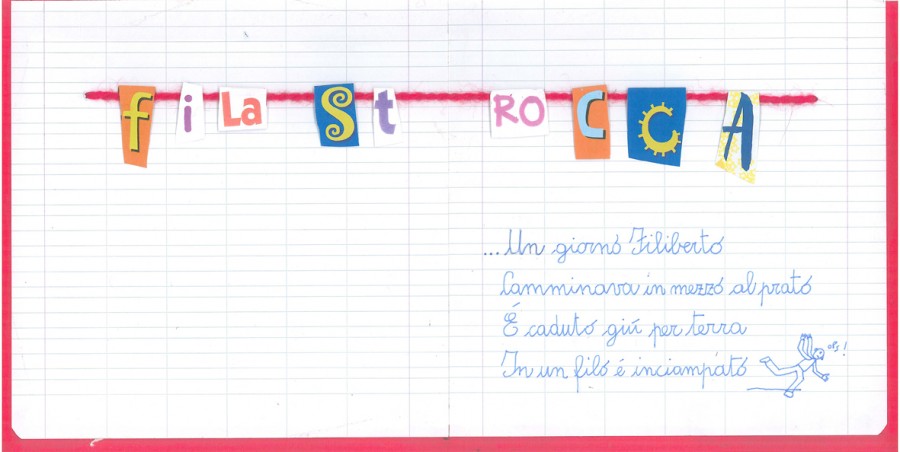 fiLa St ROCCA
...Un giorno Filiberto
Camminava in mezzo al prato
É caduto giú per terra
In un filo é inciampato
ops!